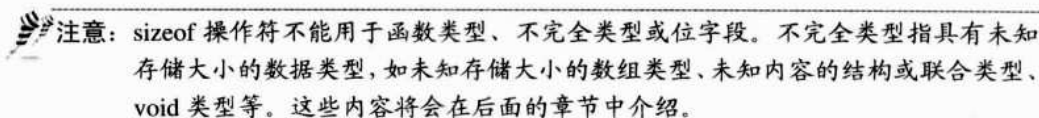 注意：sizeof 操作符不能用于函数类型、不完全类型或位字段。不完全类型指具有未知
存储大小的数据类型，如未知存储大小的数组类型、未知内容的结构或联合类型、
void 类型等。这些内容将会在后面的章节中介绍。